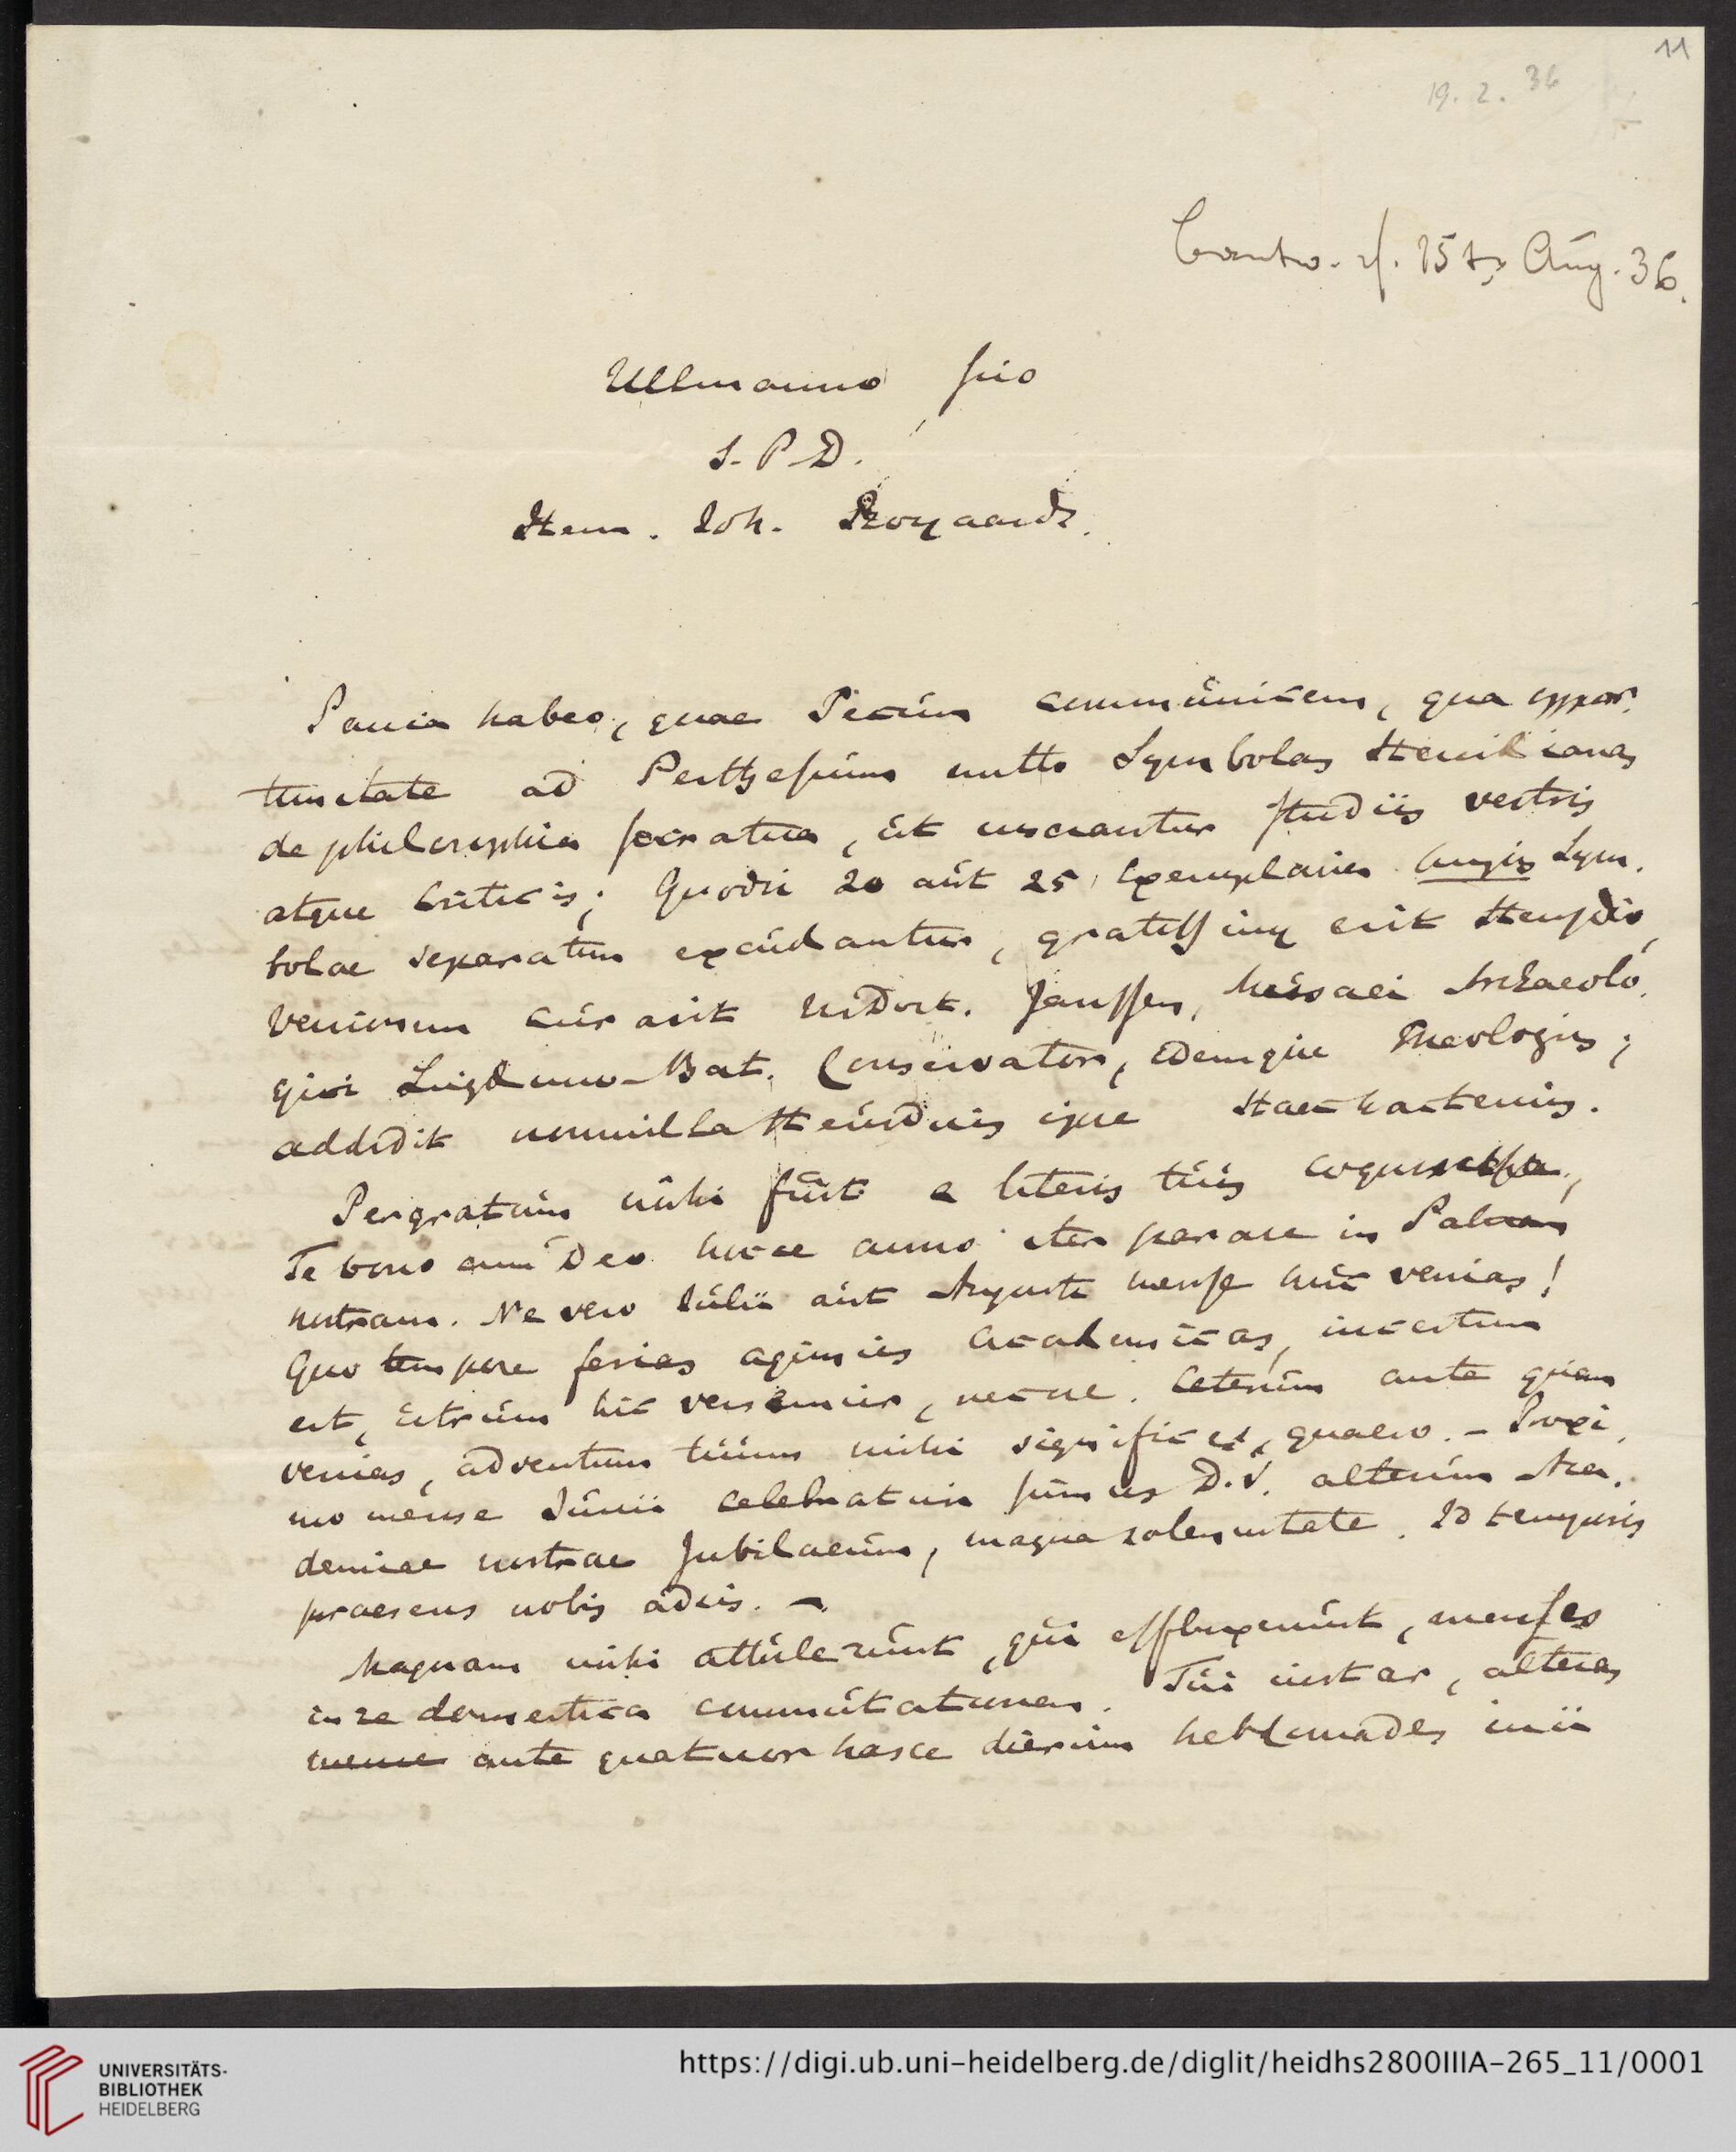 11
19. 2. 36
Aug. 36.
Ullmanno suo
S. P. D.
Herm. Joh. Royaards.
Pauca habeo, quae Tecum communicem, qua oppor-
tunitate ad Perthesium mitto Symbolas Heusdianas
de philosophia socratica, ut inserantur studiis vestris
atque criticis; Quodsi 20 aut 25 exemplaria huius Sym-
bolae separatim excudantur, gratissimum erit Heusdio
Versionem curavit Janssen, Musaei Archaeolo-
gici Lugduno-Bat. Conservator, idemque Theologus;
addidit nonnulla Heusdius ipse Haec hactenus.
Pergratum mihi fuit e literis tuis
Te bono cum Deo hocce anno iter parare in
nostram. Ne vero Julii aut Augusti mense huc venias!
Quo tempore ferias agimus Academicas, incertum
est, utrum hic versemur, necne. Ceterum ante quam
venias, adventum tuum mihi significes, quaeso. - Proxi-
mo mense Junii celebraturi sumus D. V. alterum Aca-
demiae nostrae Jubilaeum, magna solemnitate. Id temporis
praesens nobis adsis. -
Magnam mihi attulerunt, qui effluxerunt, menses
in re domestica commutationem. Tui instar, alteras
ante quatuor hasce dierum hebdomades inii
UNIVERSITÄTS-
BIBLIOTHEK
HEIDELBERG
https://digi.ub.uni-heidelberg.de/diglit/heidhs2800IIIA-265_11/0001